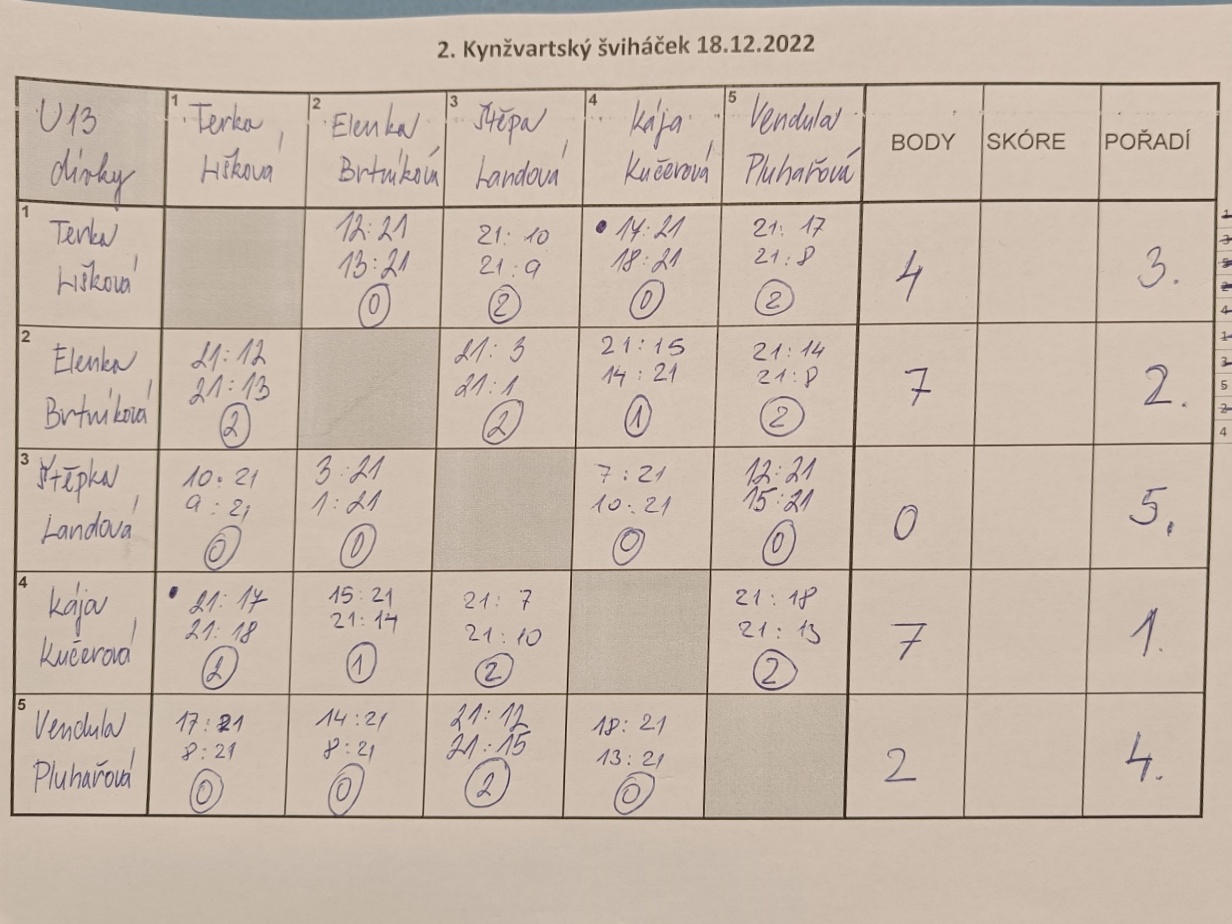 2. Kynžvartský šviháček 18.12.2022
U13 dívky
1 Terka Lišková
2 Elenka Brtníková
3 Štěpa Landová
4 Kája Kučerová
5 Vendula Pluhařová
BODY
SKÓRE
POŘADÍ
1 Terka Lišková
12:21
13:21
0
21:10
21:9
2
17:21
18:21
0
21:17
21:8
2
4
3.
2 Elenka Brtníková
21:12
21:13
2
21:3
21:1
2
21:15
14:21
1
21:14
21:8
2
7
2.
3 Štěpka Landová
10:21
9:21
0
3:21
1:21
0
7:21
10:21
0
12:21
15:21
0
0
5.
4 Kája Kučerová
21:17
21:18
2
15:21
21:14
1
21:7
21:10
2
21:18
21:13
2
7
1.
5 Vendula Pluhařová
17:21
8:21
0
14:21
8:21
0
21:12
21:15
2
18:21
13:21
0
2
4.